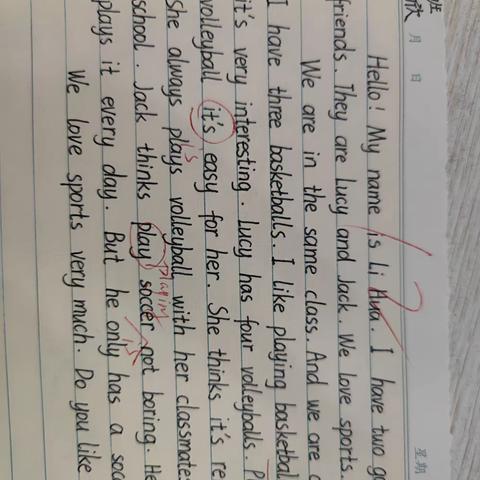 班
月 日
星期
Hello! My name is Li Hua. I have two
friends. They are Lucy and Jack. We love sports.
We are in the same class. And we are
I have three basketballs. I like playing
it's very interesting. Lucy has four volleyballs.
volleyball it's easy for her. She thinks it's
She always plays volleyball with her
is
school. Jack thinks play soccer not boring. He
playing
is
plays it every day. But he only has a
We love sports very much. Do you like